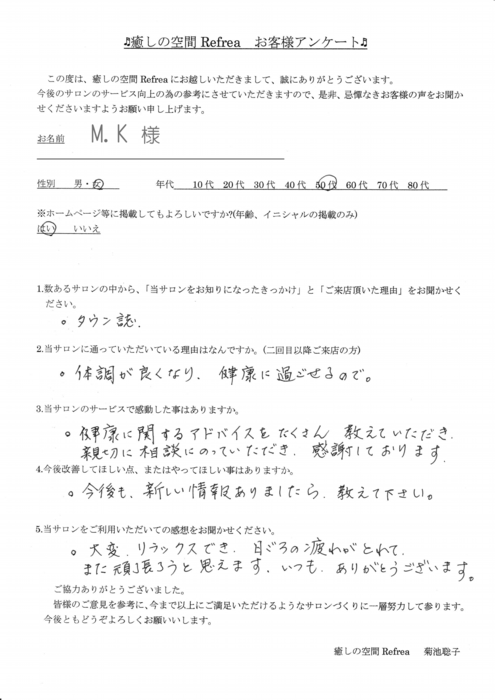 ♫癒しの空間 Refrea　お客様アンケート♫
この度は、癒しの空間 Refrea にお越しいただきまして、誠にありがとうございます。
今後のサロンのサービス向上の為の参考にさせていただきますので、是非、忌憚なきお客様の声をお聞か
せくださいますようお願い申し上げます。
お名前　M.K 様
性別　男・女　年代　10代　20代　30代　40代　50代　60代　70代　80代
※ホームページ等に掲載してもよろしいですか?(年齢、イニシャルの掲載のみ)
はい　いいえ
1.数あるサロンの中から、「当サロンをお知りになったきっかけ」と「ご来店頂いた理由」をお聞かせく
ださい。
○ タウン誌.
2.当サロンに通っていただいている理由はなんですか。(二回目以降ご来店の方)
○ 体調が良くなり. 健康に過ごせるので。
3.当サロンのサービスで感動した事はありますか。
○ 健康に関するアドバイスをたくさん 教えていただき.
親切に相談にのっていただき. 感謝しております.
4.今後改善してほしい点、またはやってほしい事はありますか。
○ 今後も. 新しい情報ありましたら. 教えて下さい。
5.当サロンをご利用いただいての感想をお聞かせください。
○ 大変. リラックスでき. 日ごろの疲れがとれて.
また頑張ろうと思えます. いつも. ありがとうございます。
ご協力ありがとうございました。
皆様のご意見を参考に、今まで以上にご満足いただけるようなサロンづくりに一層努力して参ります。
今後ともどうぞよろしくお願いいします。
癒しの空間 Refrea　菊池聡子